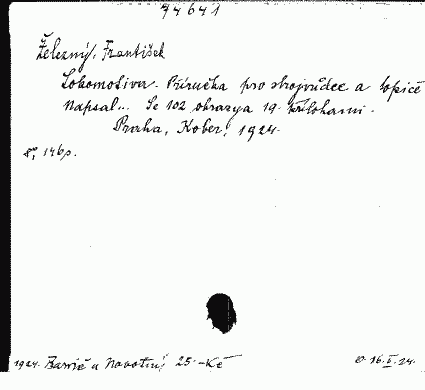 74641
Železný, František
Lokomotiva. Příručka pro strojvůdce a topiče
napsal... Se 102 obrazy a 19 přílohami.
Praha, Kober, 1924.
8°, 146 p.
1924. a Novotný 25.-Kč 16.II.24.